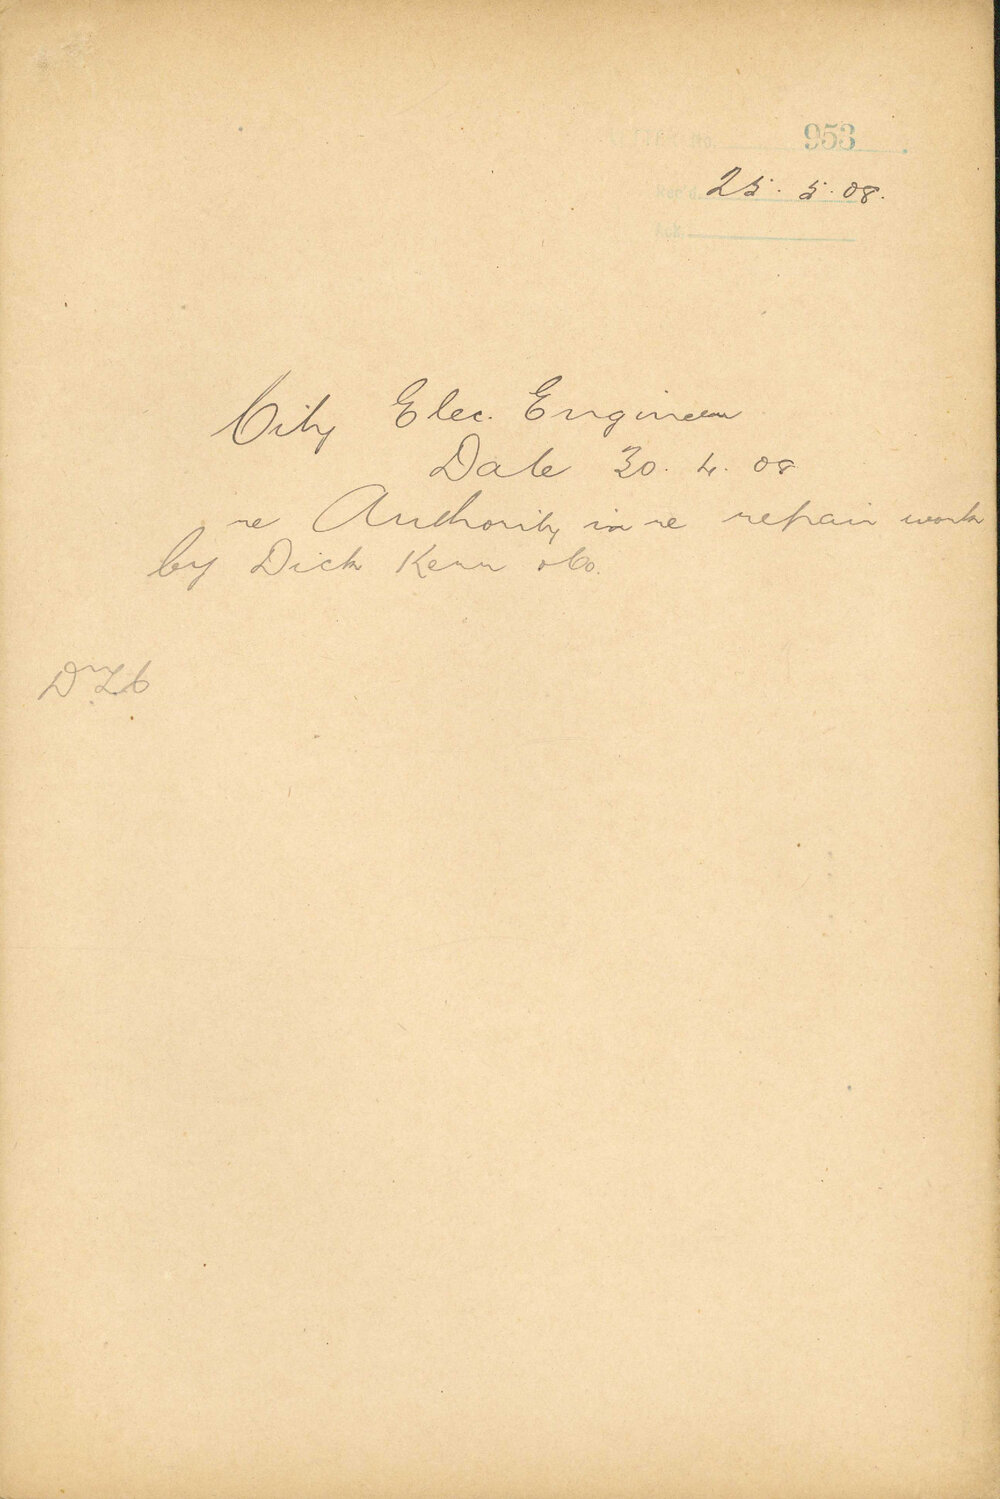 No. 953
Rec'd 25. 5. 08.
Ack
City Elec. Engineer
Date 30. 4. 08
re Authority in re repair work
by Dick Kerr & Co.